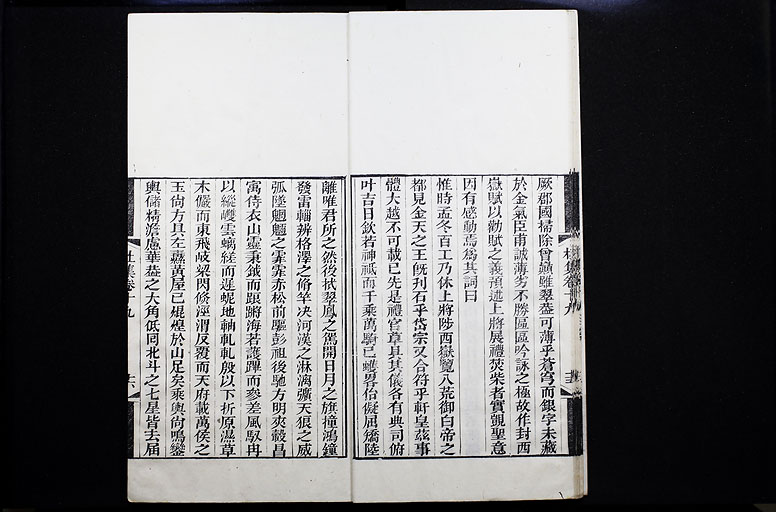 厥郡國掃除曾巔雖翠蓋可薄乎蒼穹而銀字未藏
於金氣臣甫誠薄劣不勝區區吟詠之極故作封西
嶽賦以勸賦之義預述上將展禮焚柴者實覬聖意
因有感動焉爲其詞曰
惟時孟冬百工乃休上將陟西嶽覽八荒御白帝之
都見金天之王旣刋石乎岱宗又合符乎軒皇茲事
體大越不可載已先是禮官草具其儀各有典司俯
叶吉日欽若神祇而千乘萬騎已蠖略佁儗屈矯陸
離唯君所之然後拭翠鳳之駕開日月之旗撞鴻鐘
發雷輜辨格澤之脩竿决河漢之淋漓彍天狼之威
弧墜魍魎之霏霏赤松前驅彭祖後馳方明夾轂昌
寓侍衣山靈秉鉞而踉蹡海若護蹕而參差風馭冉
以縱㠢雲螭縒而遲蜺地軸軋軋殷以下折原隰草
木儼而東飛岐梁閃倐涇渭反覆而天府載萬侯之
玉尙方具左纛黃屋已焜煌於山足矣乘輿尙鳴鑾
輿儲精澹慮華蓋之大角低囘北斗之七星皆去屆
杜集卷十九
杜集卷十九